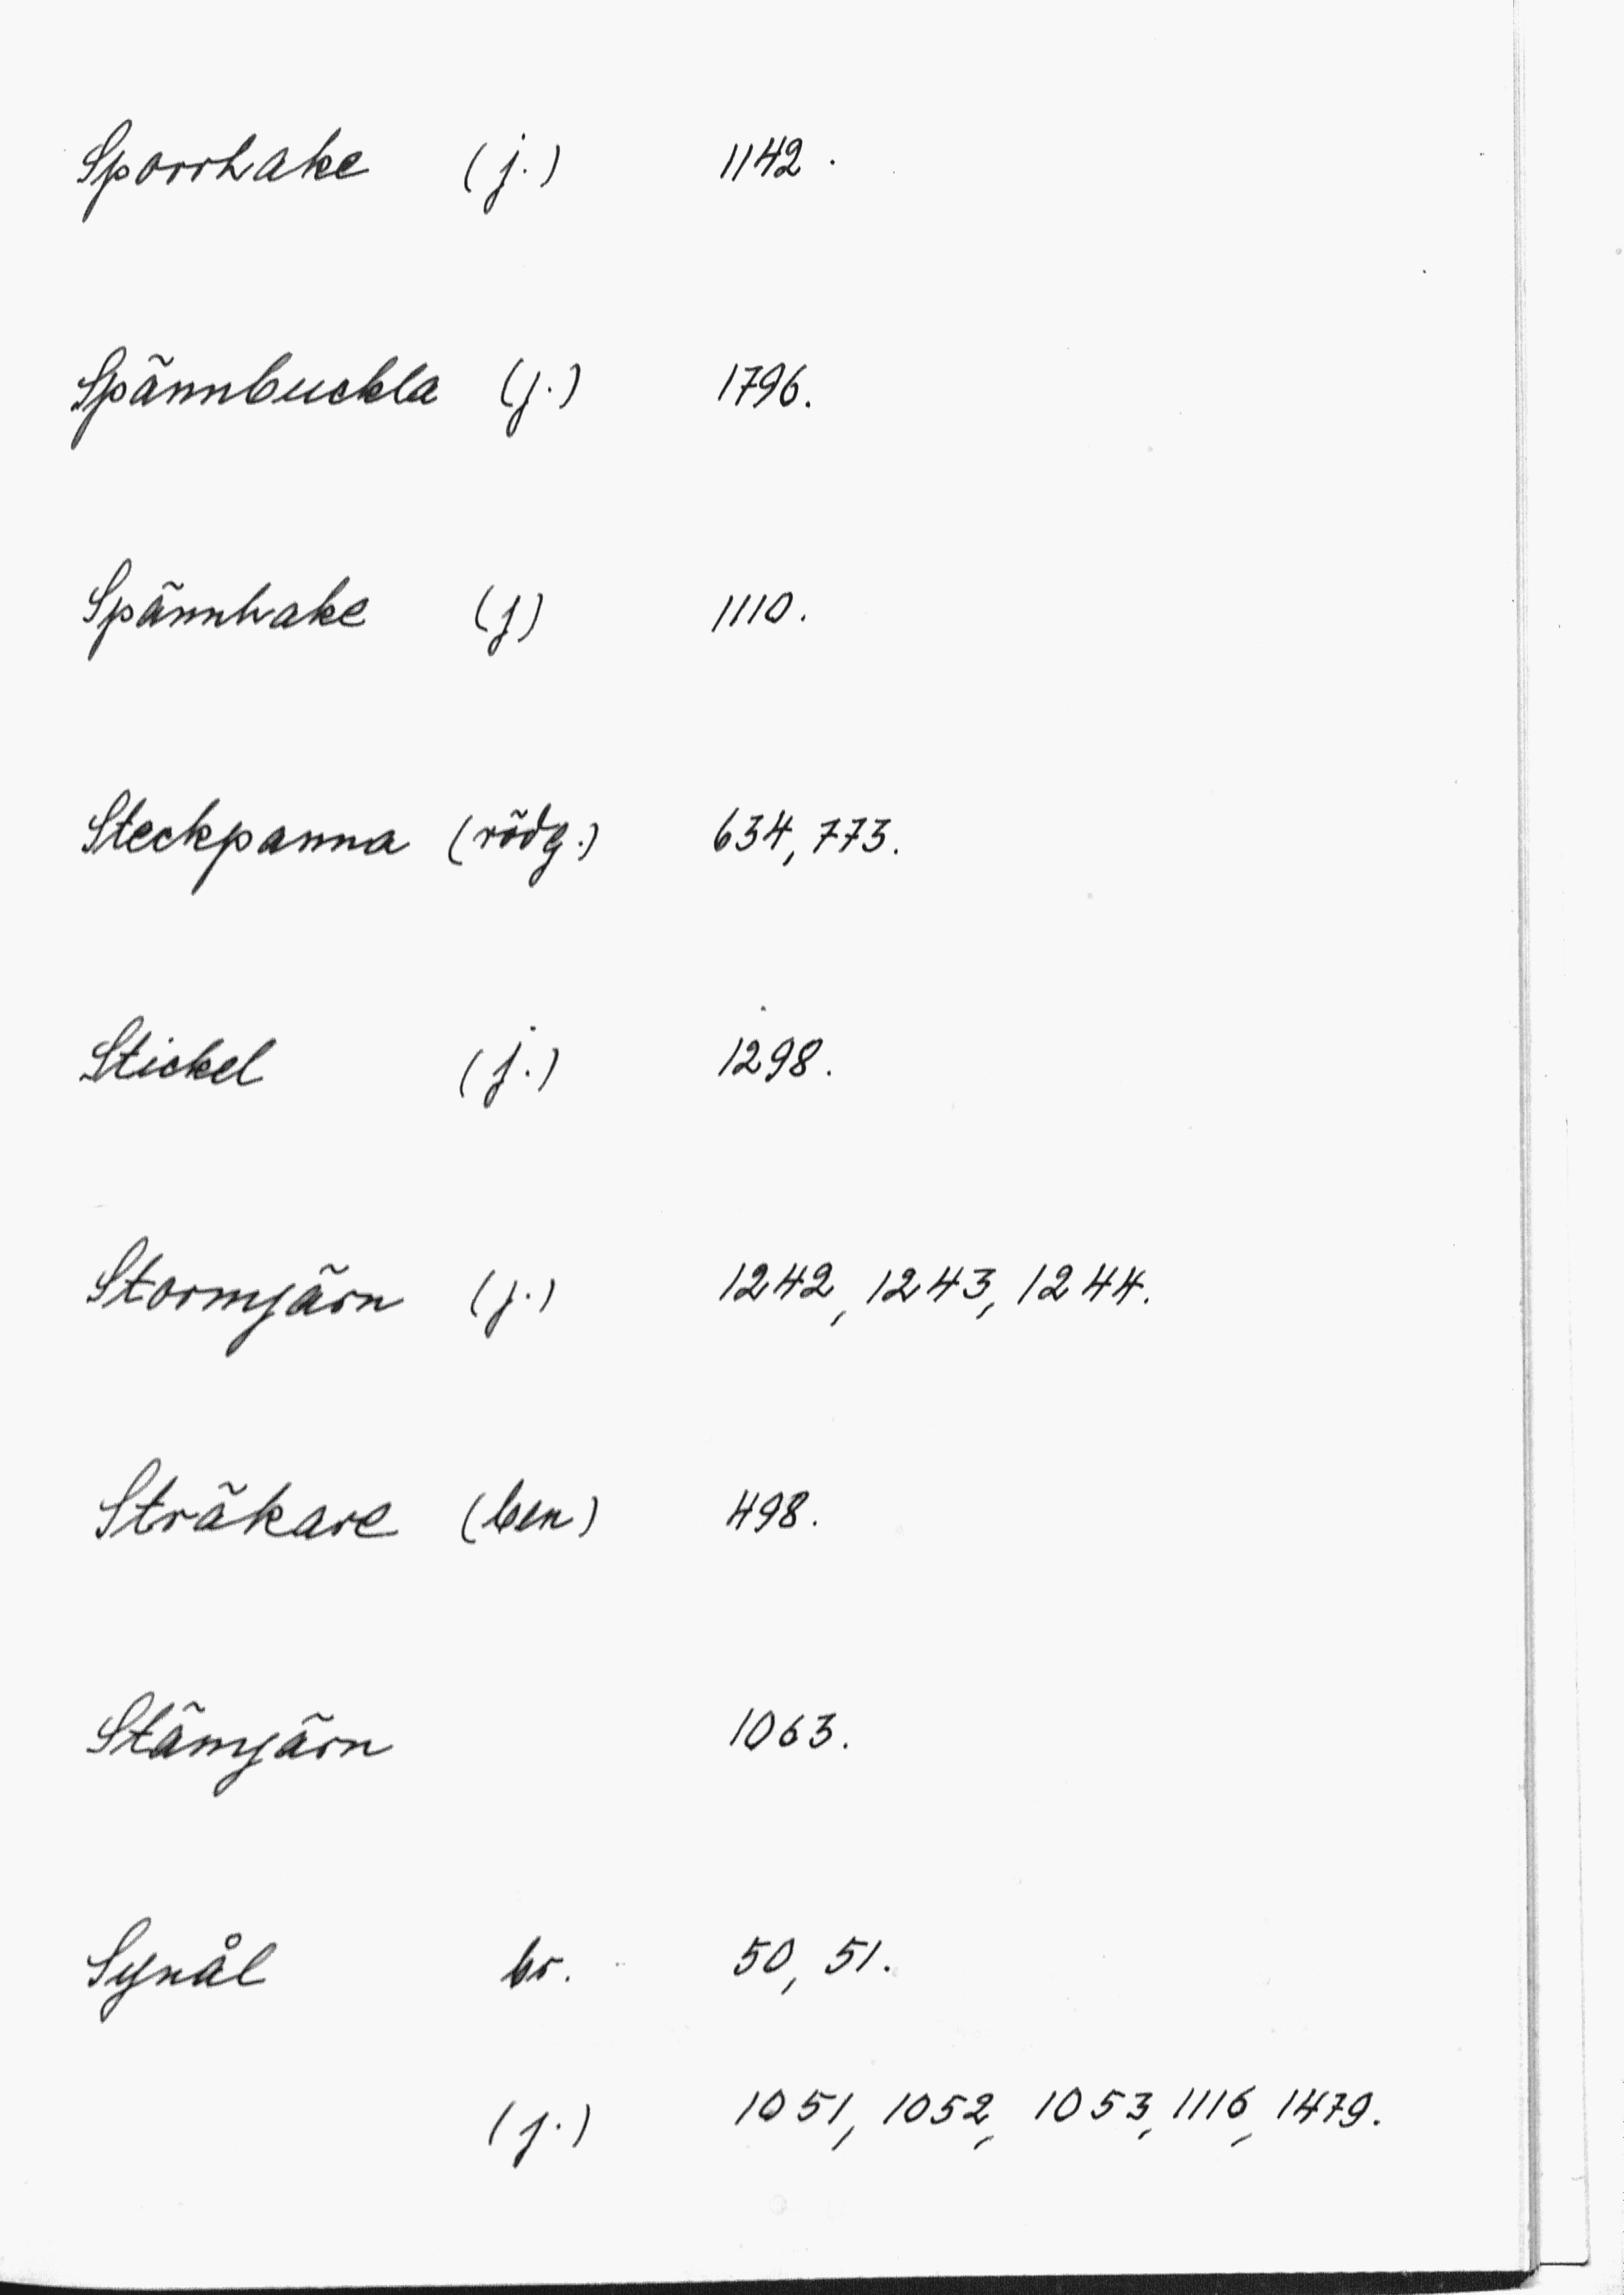 Sporrhake (j.) 1142.
Spännbuckla (j.) 1796.
Spännhake (j) 1110.
Steckpanna (rödg.) 634, 773.
Stickel (j.) 1298.
Stormjärn (j.) 1242, 1243, 1244.
Sträkare (ben) 498.
Stämjärn 1063.
Synål br. 50, 51.
(j.) 1051, 1052, 1053, 1116, 1479.